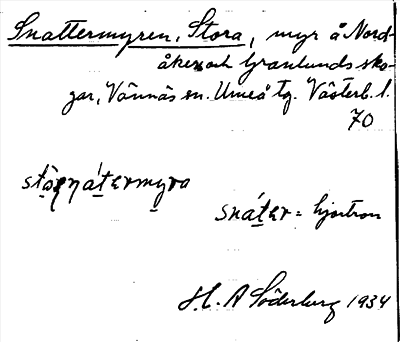 Snattermyren, Stora, myr å Nord-
åkers och Granlunds sko-
gar, Vännäs sn. Umeå tg. Västerb. l.
70
snáter = hjortron
H. A Söderberg 1934